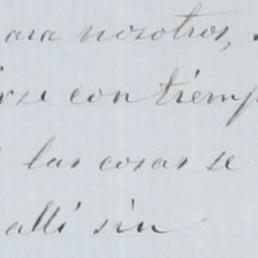 para nosotros,
irse con tiemp
las cosas se
alli sin